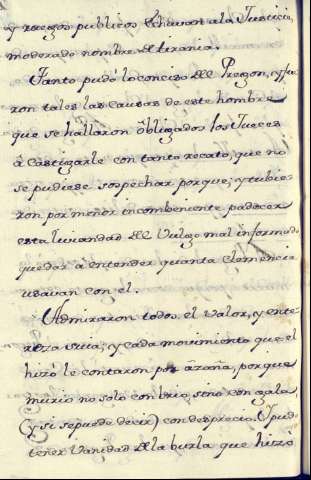 y ruegos publicos Echavan a la Justicia,
moderado nombre de tirania.
Tanto pudó lo conciso del Pregon, y fue
ron tales las causas de este hombre
que se hallaron obligados los Jueces
â castigarle con tanto recato, que no
se pudiese sospechar porque; y tubie
ron por menor incombeniente padecer
esta liviandad del Vulgo mal informado
que dar â entender quanta clemencia
usavan con el.
Admiraron todos el valor, y ente
reza suia; y cada movimiento que el
hizó le contaron por azaña, porque
murio no solo con brio, sino con gala,
(y si se puede decir) con desprecio. Y pudo
tener Vanidad de la burla que hizó